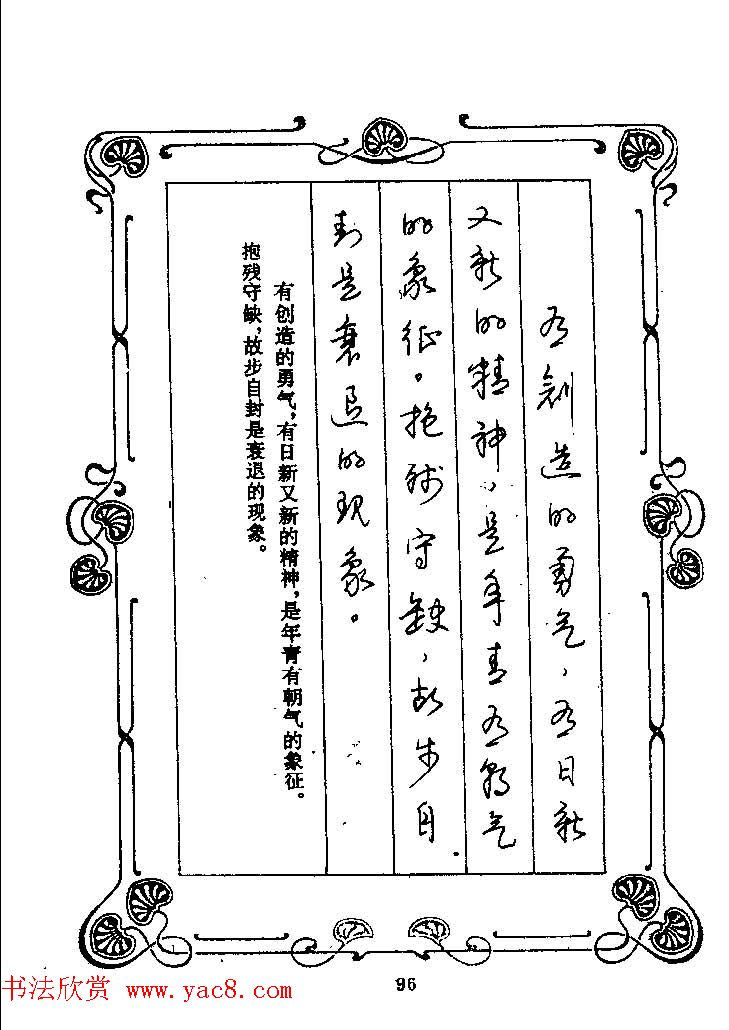 有创造的勇气，有日新
又新的精神，是年青有朝气
的象征。抱残守缺，故步自
封是衰退的现象。
有创造的勇气，有日新又新的精神，是年青有朝气的象征。
抱残守缺，故步自封是衰退的现象。
96
书法欣赏 www.yac8.com